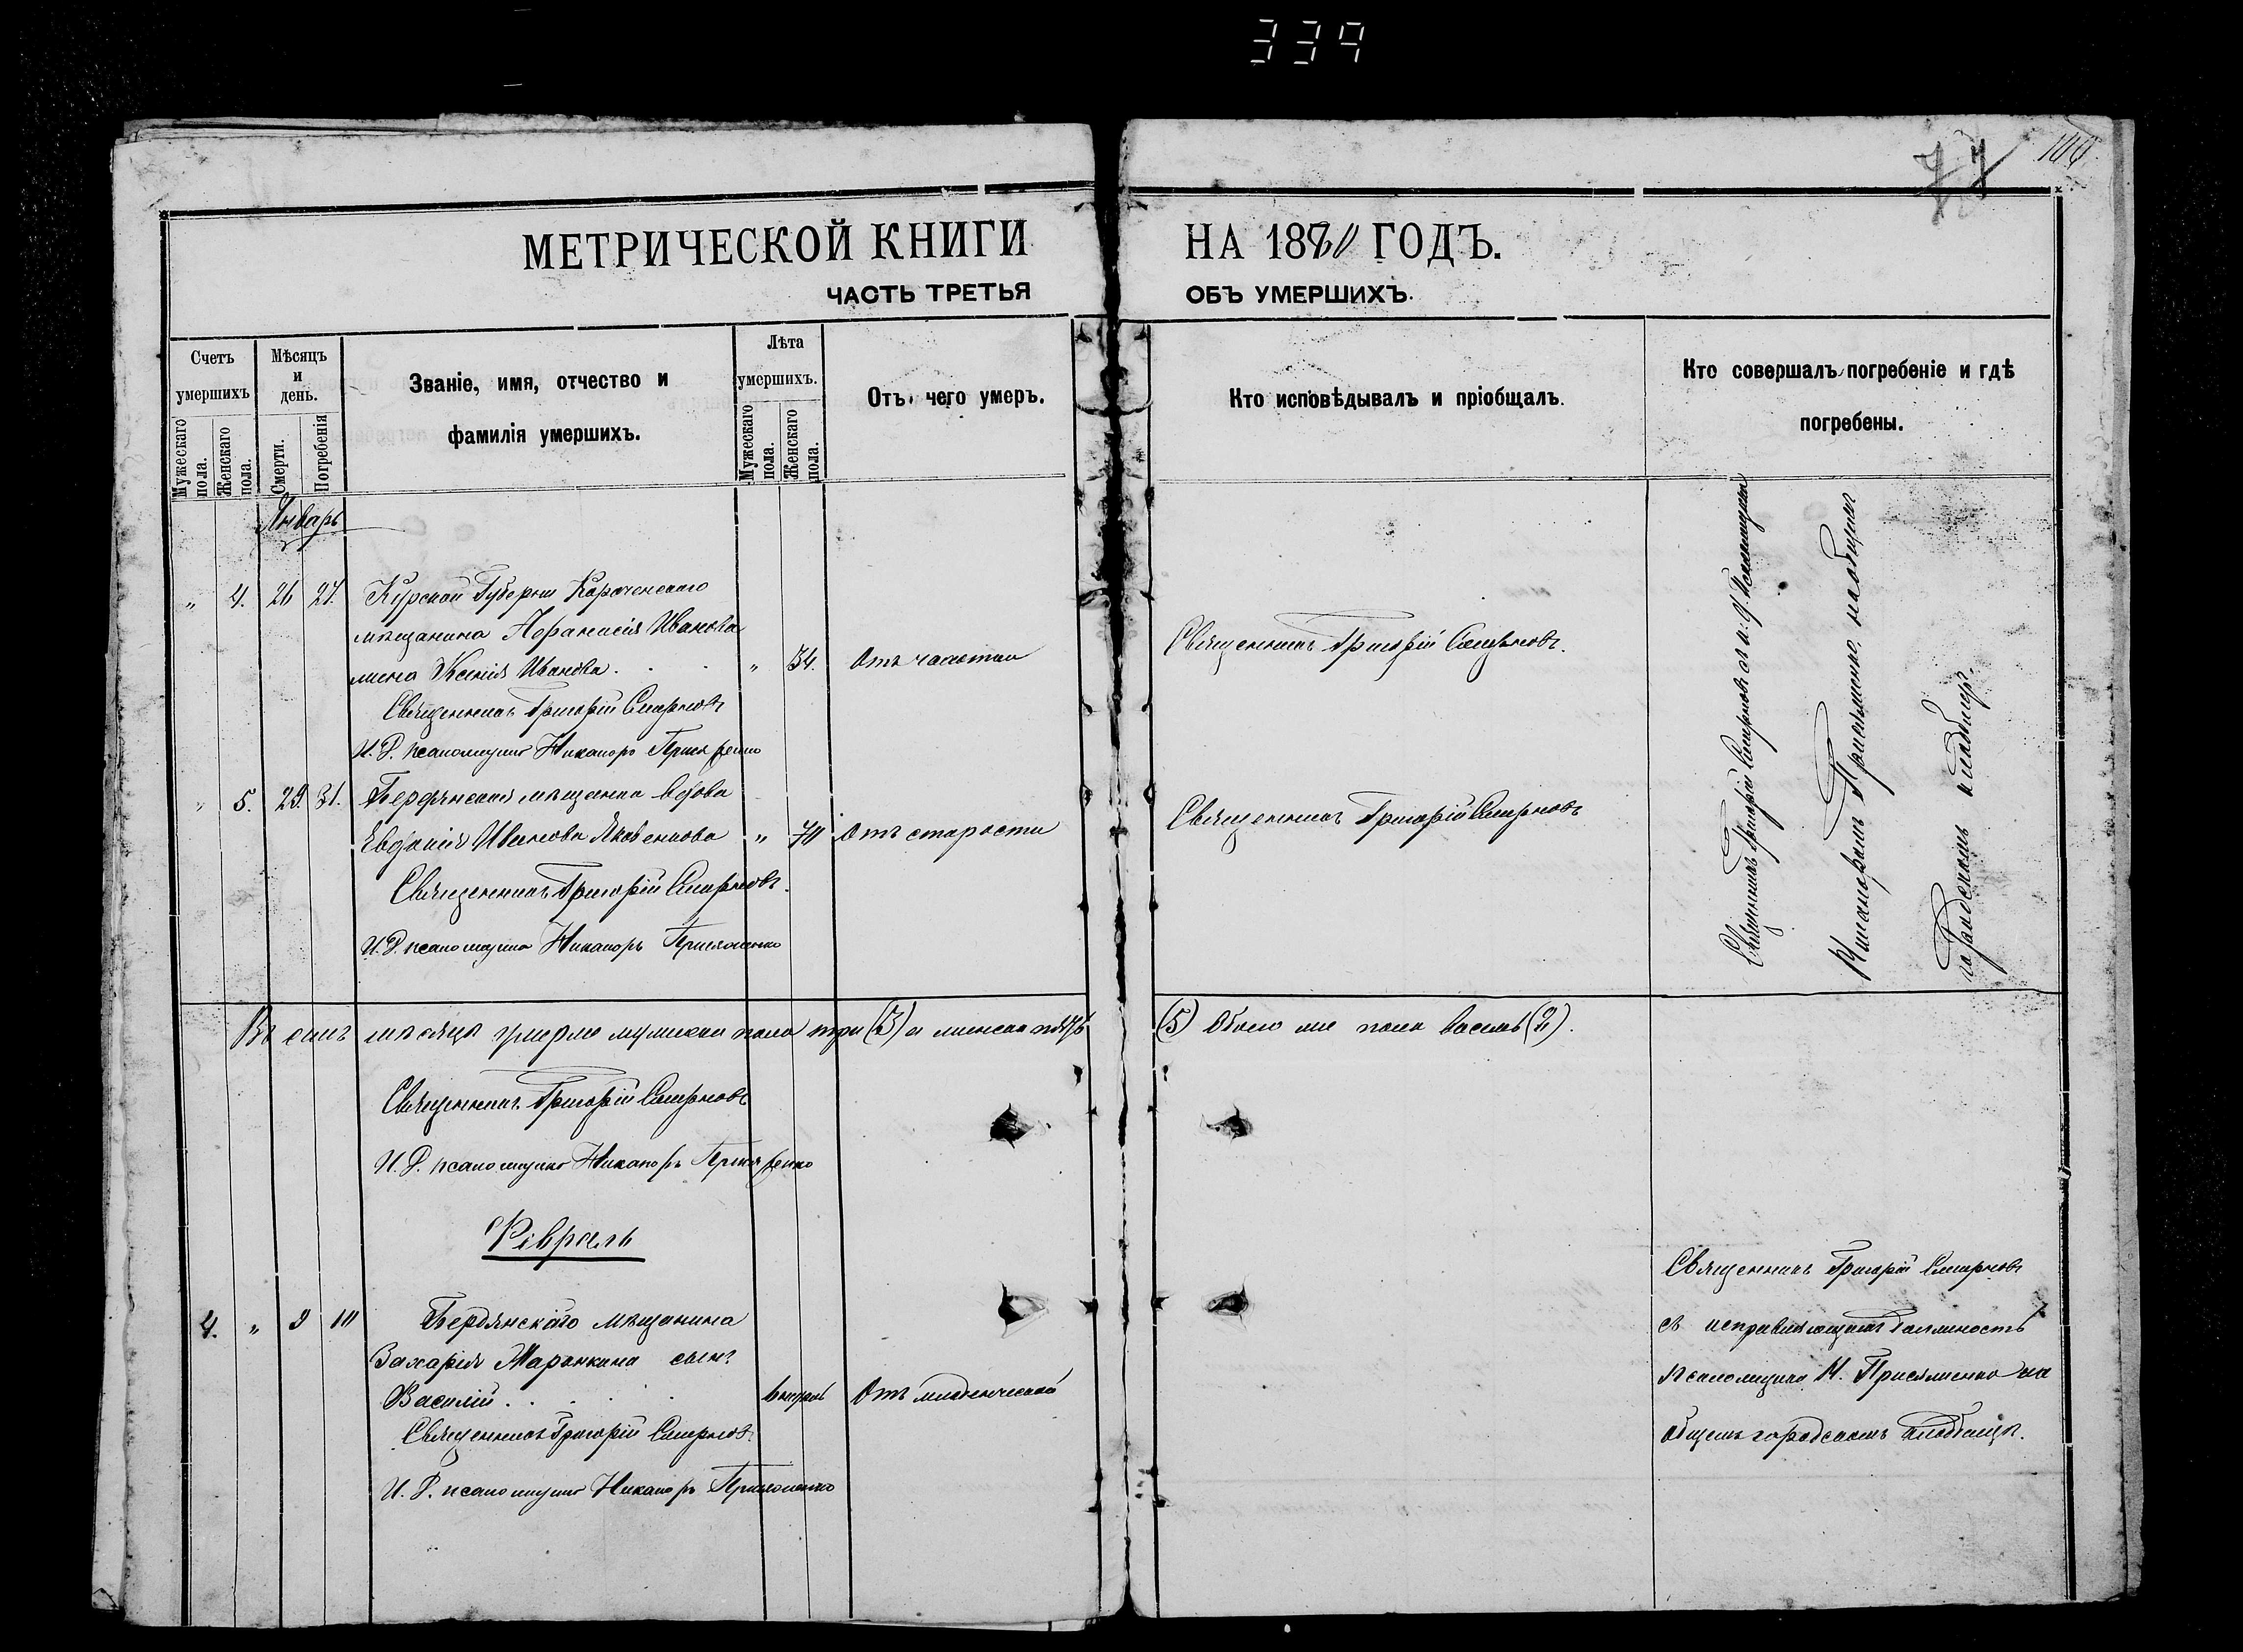 339
77
100
МЕТРИЧЕСКОЙ КНИГИ НА 1880 ГОДЪ.
ЧАСТЬ ТРЕТЬЯ ОБЪ УМЕРШИХЪ.
Счетъ умершихъ
Мужескаго пола.
Женскаго пола.
Мѣсяцъ и день.
Смерти.
Погребенія
Званіе, имя, отчество и
фамилія умершихъ.
Лѣта умершихъ.
Мужескаго пола.
Женскаго пола.
Отъ чего умеръ.
Кто исповѣдывалъ и пріобщалъ.
Кто совершалъ погребеніе и гдѣ
погребены.
Январь
" 4. 26 27. Курской Губерніи
мѣщанина Афанасія Иванова
жена Ксенія Иванова. " 34. Отъ чахотки Священникъ Григорій Смирновъ.
Священникъ Григорій Смирновъ
И. Д. псаломщика Никаноръ
" 5. 29. 31. Бердянская мѣщанка вдова
Евфимія Иванова Яковенкова " 70 Отъ старости Священникъ Григорій Смирновъ
Священникъ Григорій Смирновъ.
И. Д. псаломщика Никаноръ
Священникъ Григорій Смирновъ съ и. д. псаломщика
Никаноромъ на общемъ
городскомъ кладбищѣ.
Въ семъ мѣсяцѣ умерло мужска пола три (3) а женска пять (5) Обоего же пола восемь
Священникъ Григорій Смирновъ
И. Д. псаломщика Никаноръ
Февраль
4. " 9 10 Бердянскаго мѣщанина
Захарія сынъ
Василій. Отъ младенческой
Священникъ Григорій Смирновъ
И. Д. псаломщика Никаноръ
Священникъ Григорій Смирновъ
съ исправляющимъ должность
псаломщика Н. на
общемъ городскомъ кладбищѣ.